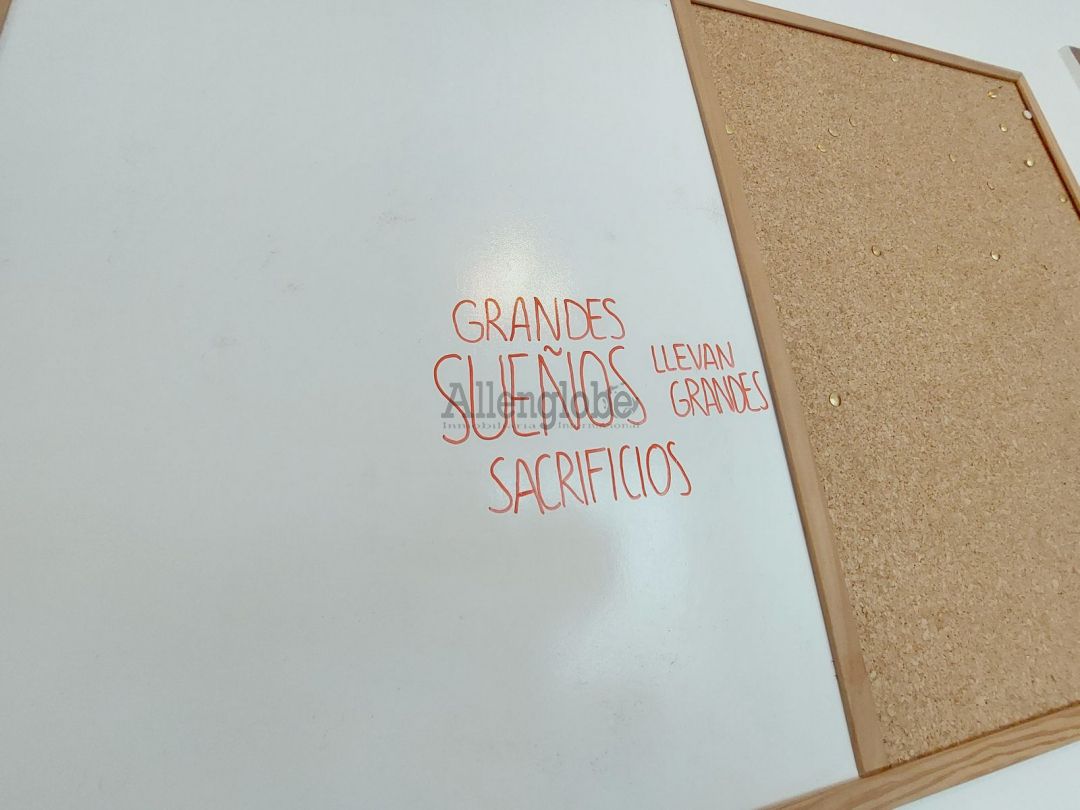 GRANDES
SUEÑOS
LLEVAN
GRANDES
SACRIFICIOS
Allenglobe
Inmobiliaria Internacional